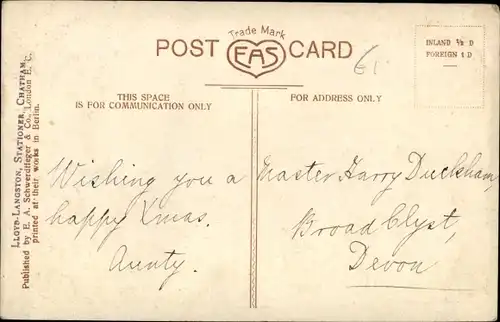 Trade Mark
POST CARD
EAS
INLAND ½ D
FOREIGN 1 D
61
THIS SPACE
IS FOR COMMUNICATION ONLY
FOR ADDRESS ONLY
LLOYD-LANGSTON, STATIONER, CHATHAM.
Published by E. A. Schwerdtfeger & Co., London E. C.
printed at their works in Berlin.
Wishing you a
happy Xmas.
Aunty.
Master Harry Duckham,
Broad Clyst,
Devon